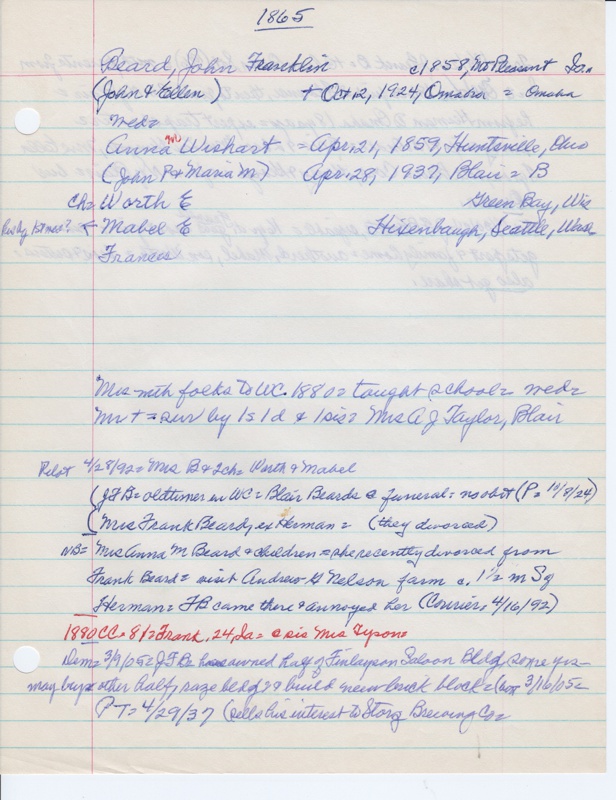 1865
Beard, John Franklin c1858, Mt Pleasant Ia.
(John & Ellen) + Oct 12, 1924, Omaha = Omaha
wed=
Anna M Wishart = Apr. 21, 1859, Huntsville, Ohio
(John P & Maria M) Apr. 28, 1937, Blair = B
Ch = Worth E Green Bay, Wis
Mabel E Hixenbaugh, Seattle, Wash
Frances
Mrs with folks to WC. 1880 = taught school = wed =
Mr + = sur by 1 s 1 d & 1 sis = Mrs A J Taylor, Blair
Pilot 4/28/92 = Mrs B & 2 ch = Worth & Mabel
(JFB = oldtimer in WC = Blair Beards @ funeral = no obit (P = 10/8/24)
(Mrs Frank Beard, ex Herman = (they divorced)
NB = Mrs Anna M Beard & children = she recently divorced from
Frank Beard = visit Andrew G Nelson farm c. 1 1/2 m S of
Herman = FB came there & annoyed her (Courier, 4/16/92)
1880 CC = 81 = Frank, 24, Ia = @ sis Mrs Tyson =
Dem = 3/9/05 = JFB has owned half of Finlayson Saloon Bldg some yrs =
may buy other half, raze bldg & build new brick block = 3/16/05 =
PT = 4/29/37 (sells his interest to Storz Brewing Co =